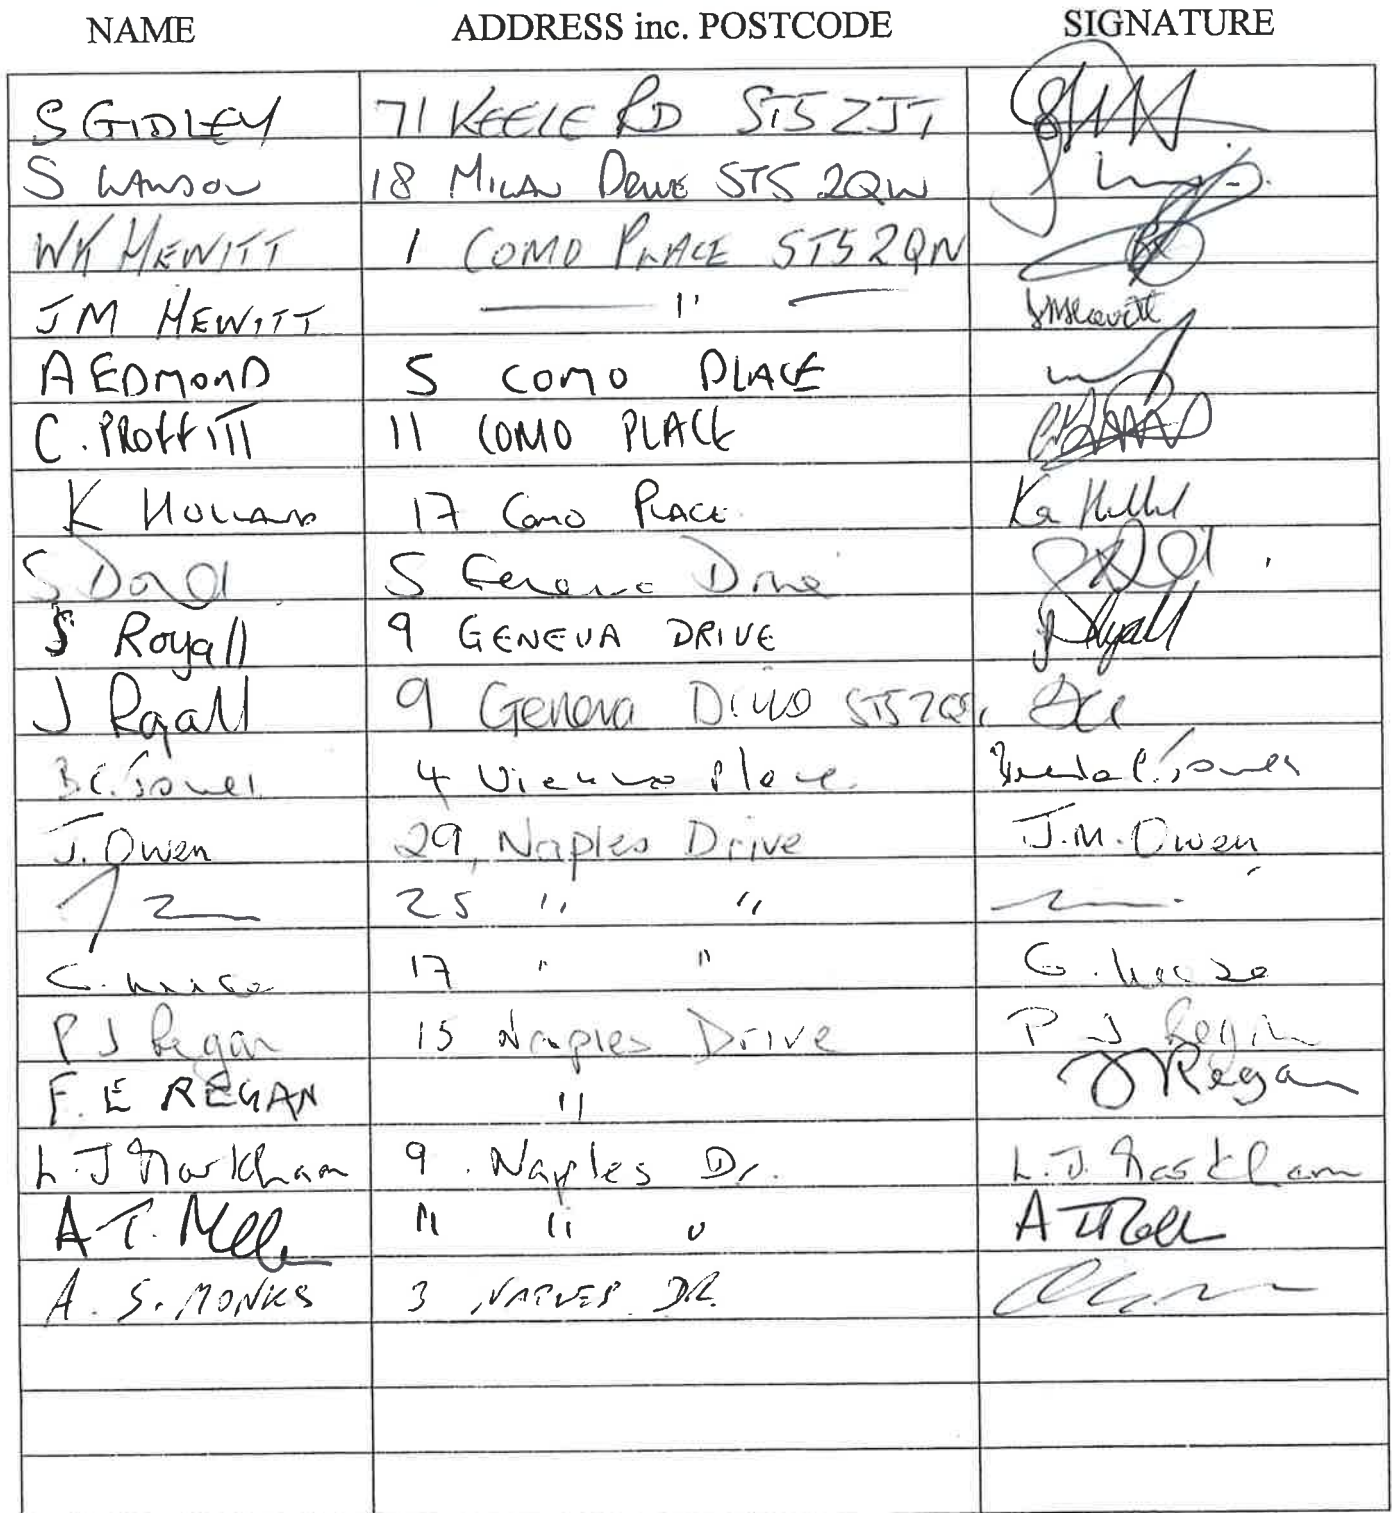 NAME ADDRESS inc. POSTCODE SIGNATURE
S GIDLEY 71 KEELE RD ST5 2JT
S LAWSON 18 MILAN DRIVE ST5 2QW
WK HEWITT 1 COMO PLACE ST5 2QN
JM HEWITT — " — JMHewitt
A EDMOND 5 COMO PLACE
C. PROFFITT 11 COMO PLACE
K HOLLAND 17 Como PLACE
S 5 Geneva Drive
S Royall 9 GENEVA DRIVE Royall
J Royall 9 Geneva Drive ST5 2QS
B.C. Jones 4 Vienna Place Brenda C. Jones
J. Owen 29, Naples Drive J.M. Owen
25 " "
17 " " G.
P J Regan 15 Naples Drive P J Regan
F. E REGAN " Regan
L. J Markham 9. Naples Dr. L. J. Markham
A T. " " " A T
A. S. MONKS 3 NAPLES DR.